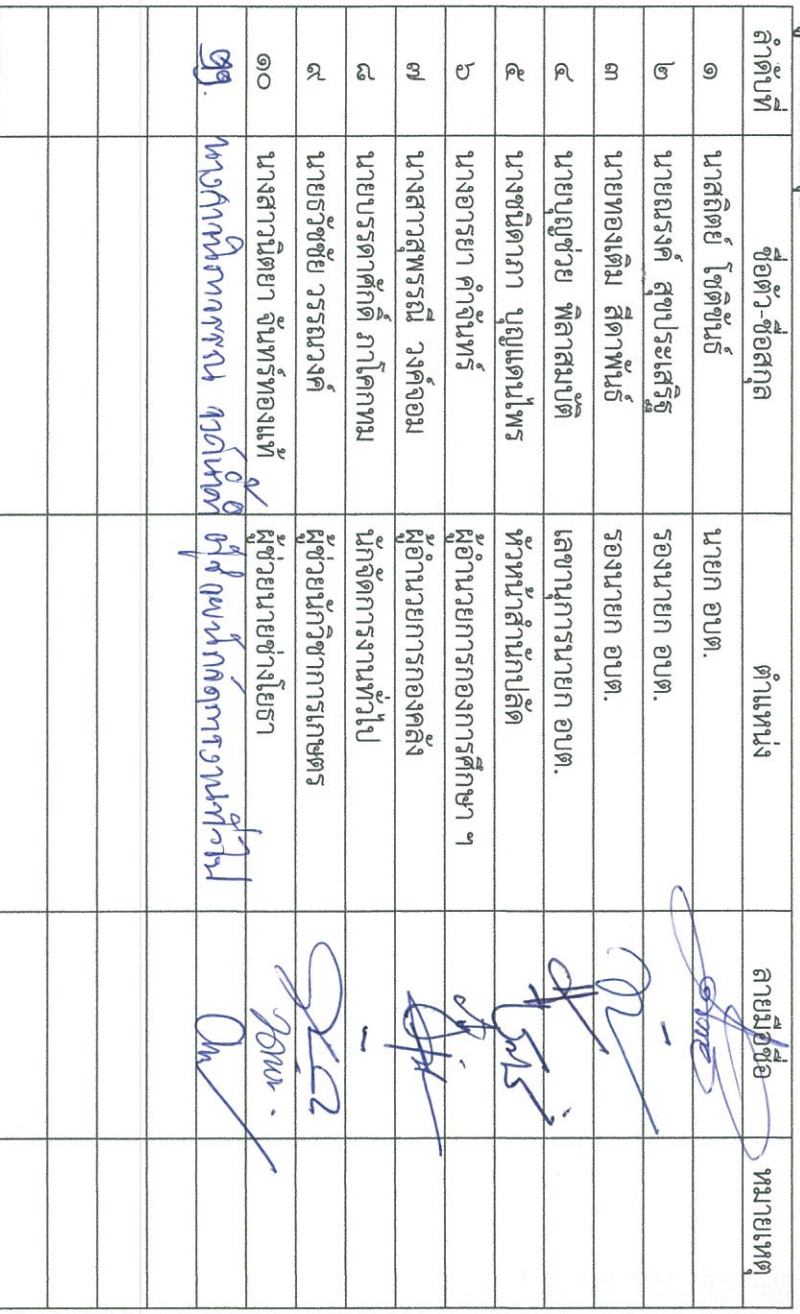 ลำดับที่ ชื่อตัว-ชื่อสกุล ตำแหน่ง ลายมือชื่อ หมายเหตุ
๑ นาสถิตย์ โชติขันธ์ นายก อบต.
๒ นายณรงค์ สุขประเสริฐ รองนายก อบต. -
๓ นายทองเติม สีดาพันธ์ รองนายก อบต.
๔ นายบุญช่วย พิลาสมบัติ เลขานุการนายก อบต.
๕ นางชนิดาภา บุญแดนไพร หัวหน้าสำนักปลัด
๖ นางอารยา คำจันทร์ ผู้อำนวยการกองการศึกษา ฯ
๗ นางสาวสุพรรณี วงค์จอม ผู้อำนวยการกองคลัง
๘ นายบรรดาศักดิ์ ภาโคกทม นักจัดการงานทั่วไป -
๙ นายธวัชชัย วรรณวงค์ ผู้ช่วยนักวิชาการเกษตร
๑๐ นางสาวนิตยา จันทร์ทองแท้ ผู้ช่วยนายช่างโยธา
๑๑. ผู้ช่วยนักจัดการงานทั่วไป